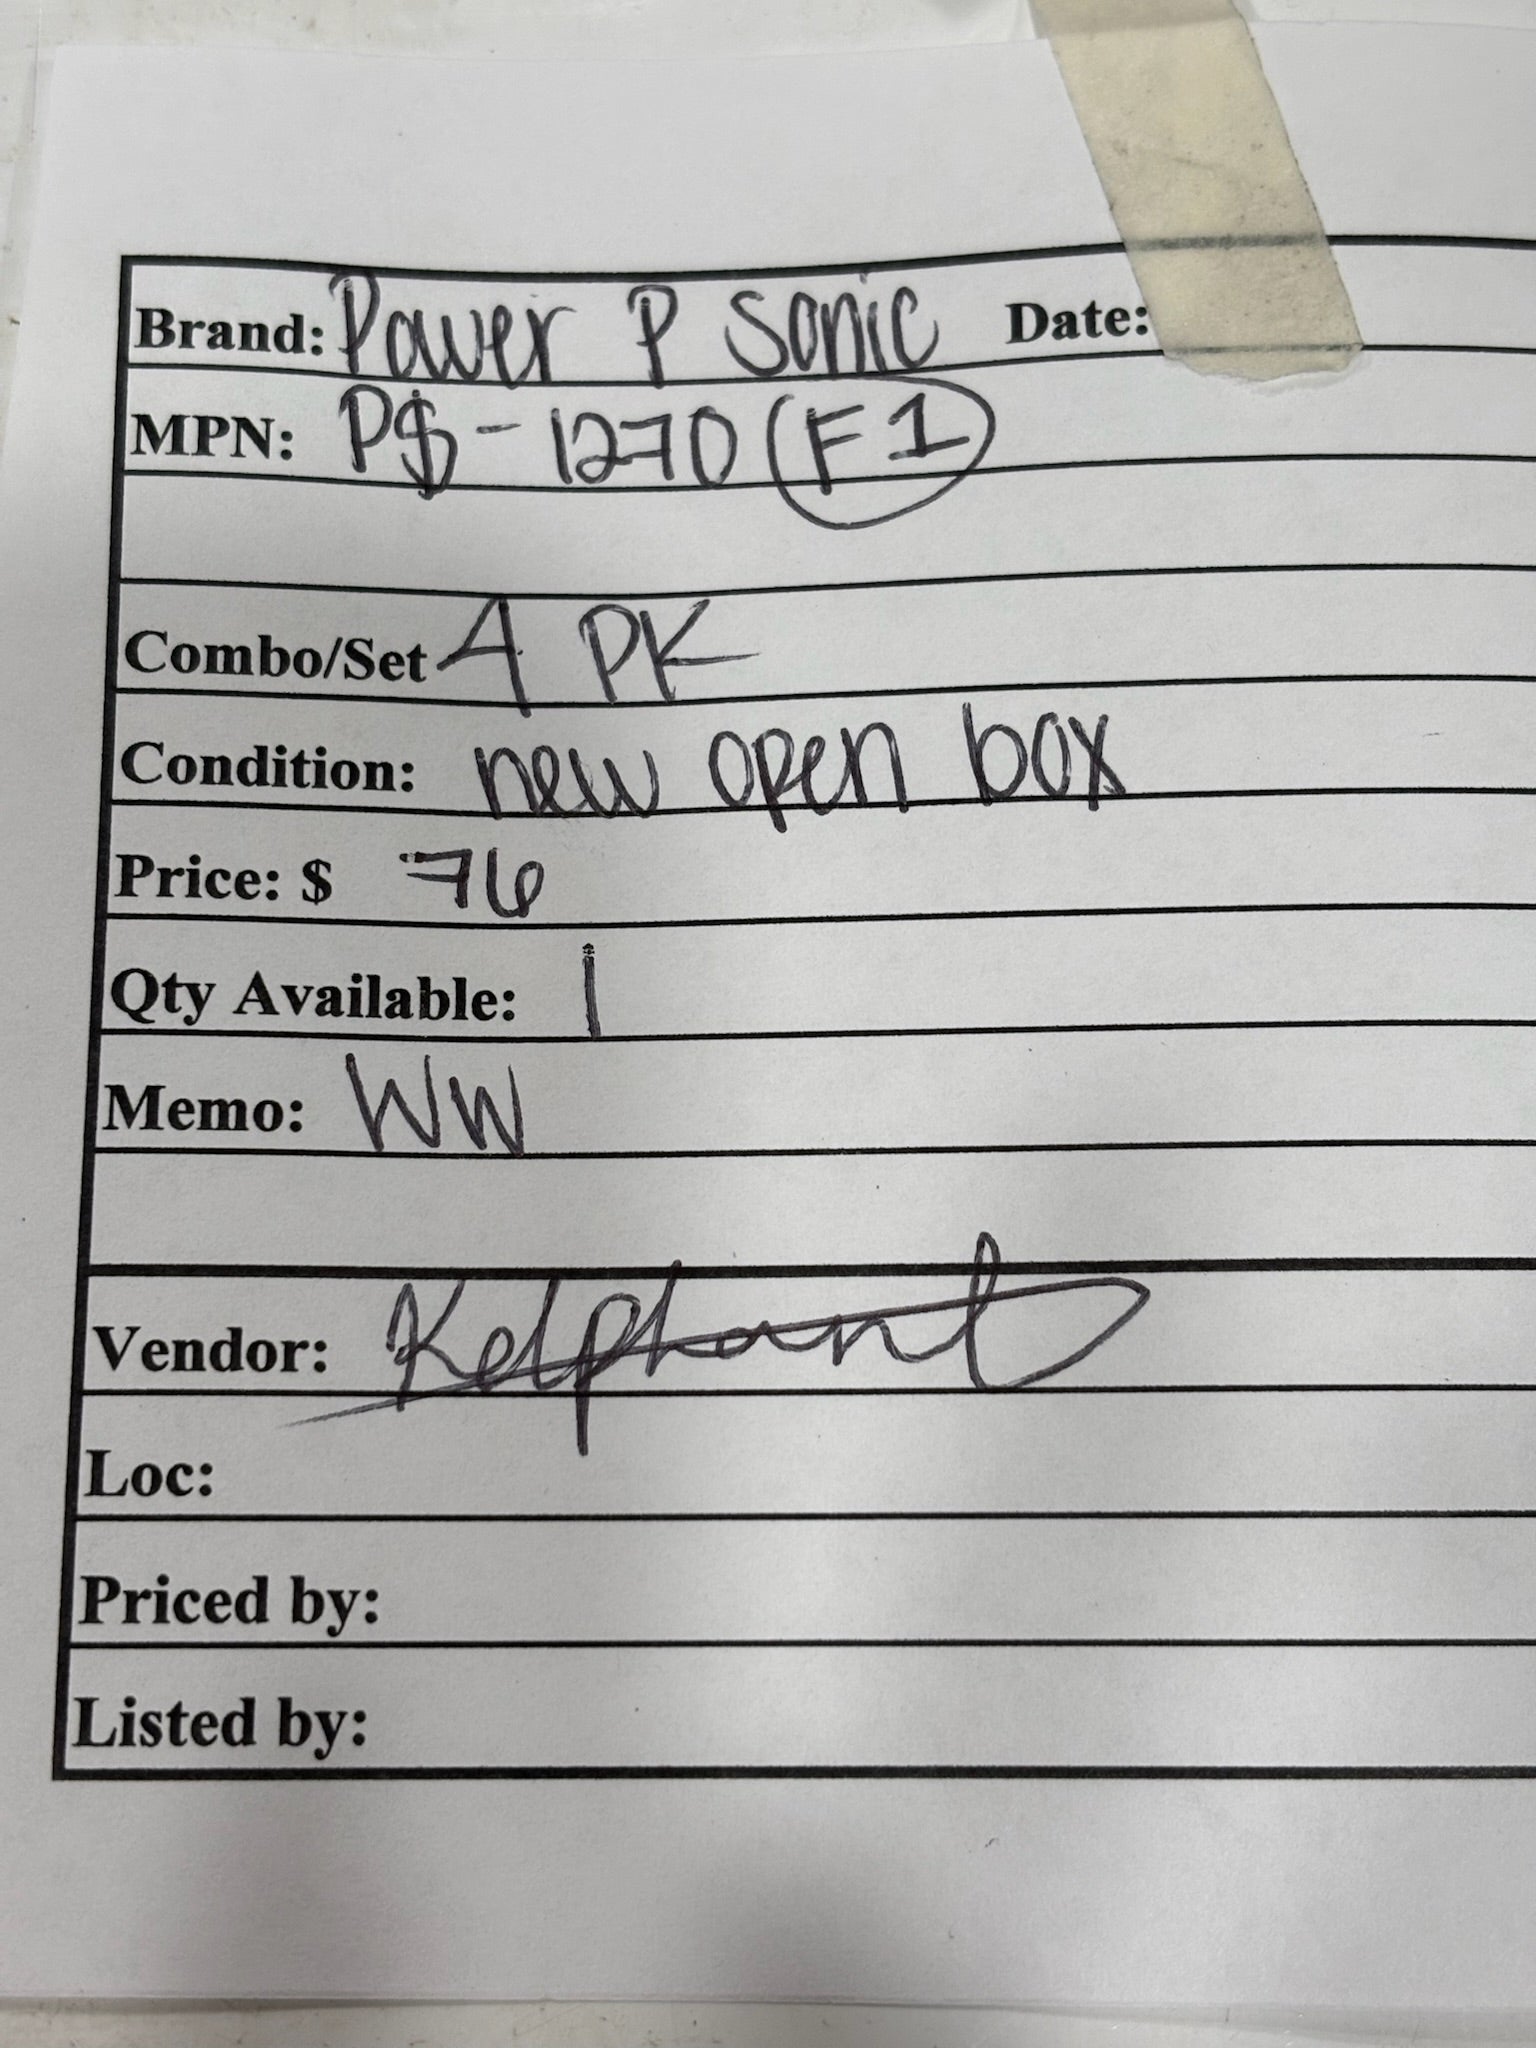 Brand: Power P Sonic Date:
MPN: P$-1270 (F1)
Combo/Set 4 PK
Condition: new open box
Price: $ 76
Qty Available: 1
Memo: WW
Vendor: Kelphant
Loc:
Priced by:
Listed by: